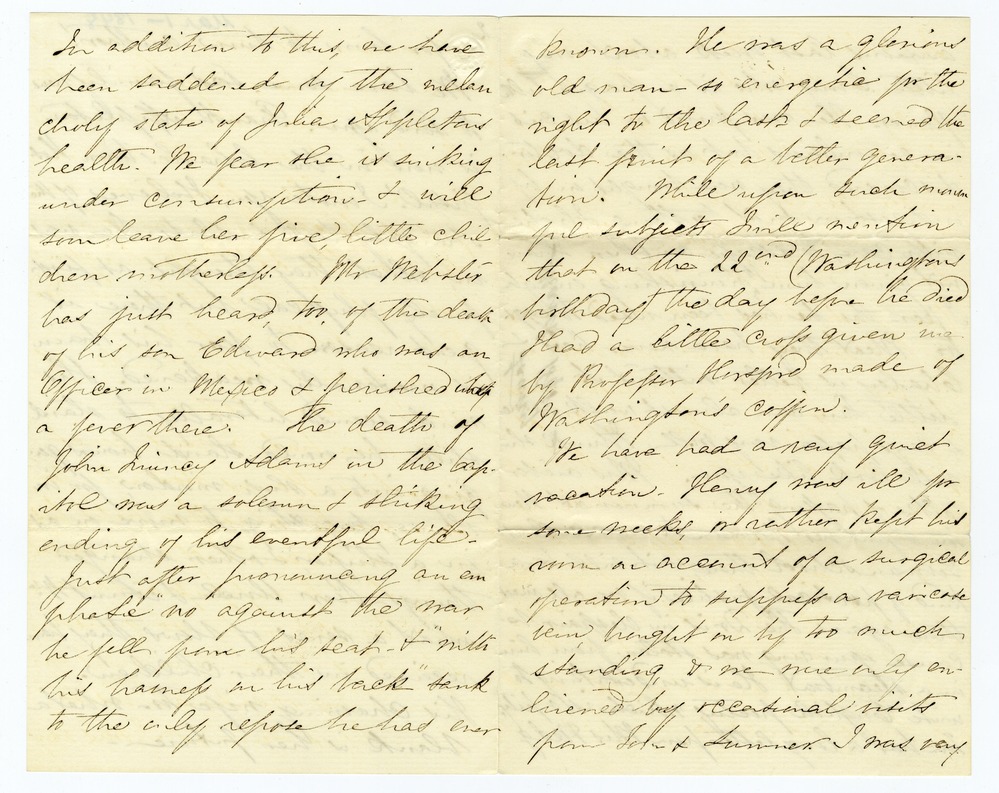 In addition to this, we have
been saddened by the melan
choly state of Julia Appletons
health. We fear she is sinking
under consumption - & will
soon leave her five, little chil
dren motherless. Mr Webster
has just heard, too, of the death
of his son Edward who was an
Officer in Mexico & perished
a fever there. The death of
John Quincy Adams in the Cap-
itol was a solemn & striking
ending of his eventful life.
Just after pronouncing an em
phatic "no" against the war
he fell from his seat - & "with
his harness on his back" sank
to the only repose he has ever
known. He was a glorious
old man - so energetic for the
right to the last & seemed the
last fruit of a better genera-
tion. While upon such mourn
ful subjects I will mention
that on the 22nd (Washington's
birthday) the day before he died
I had a little cross given me
by Professor Horsford made of
Washington's coffin.
We have had a very quiet
vacation. Henry was ill for
some weeks, or rather kept his
room on account of a surgical
operation to suppress a varicose
vein brought on by too much
standing, & we were only en-
livened by occasional visits
from Tom & Sumner. I was very